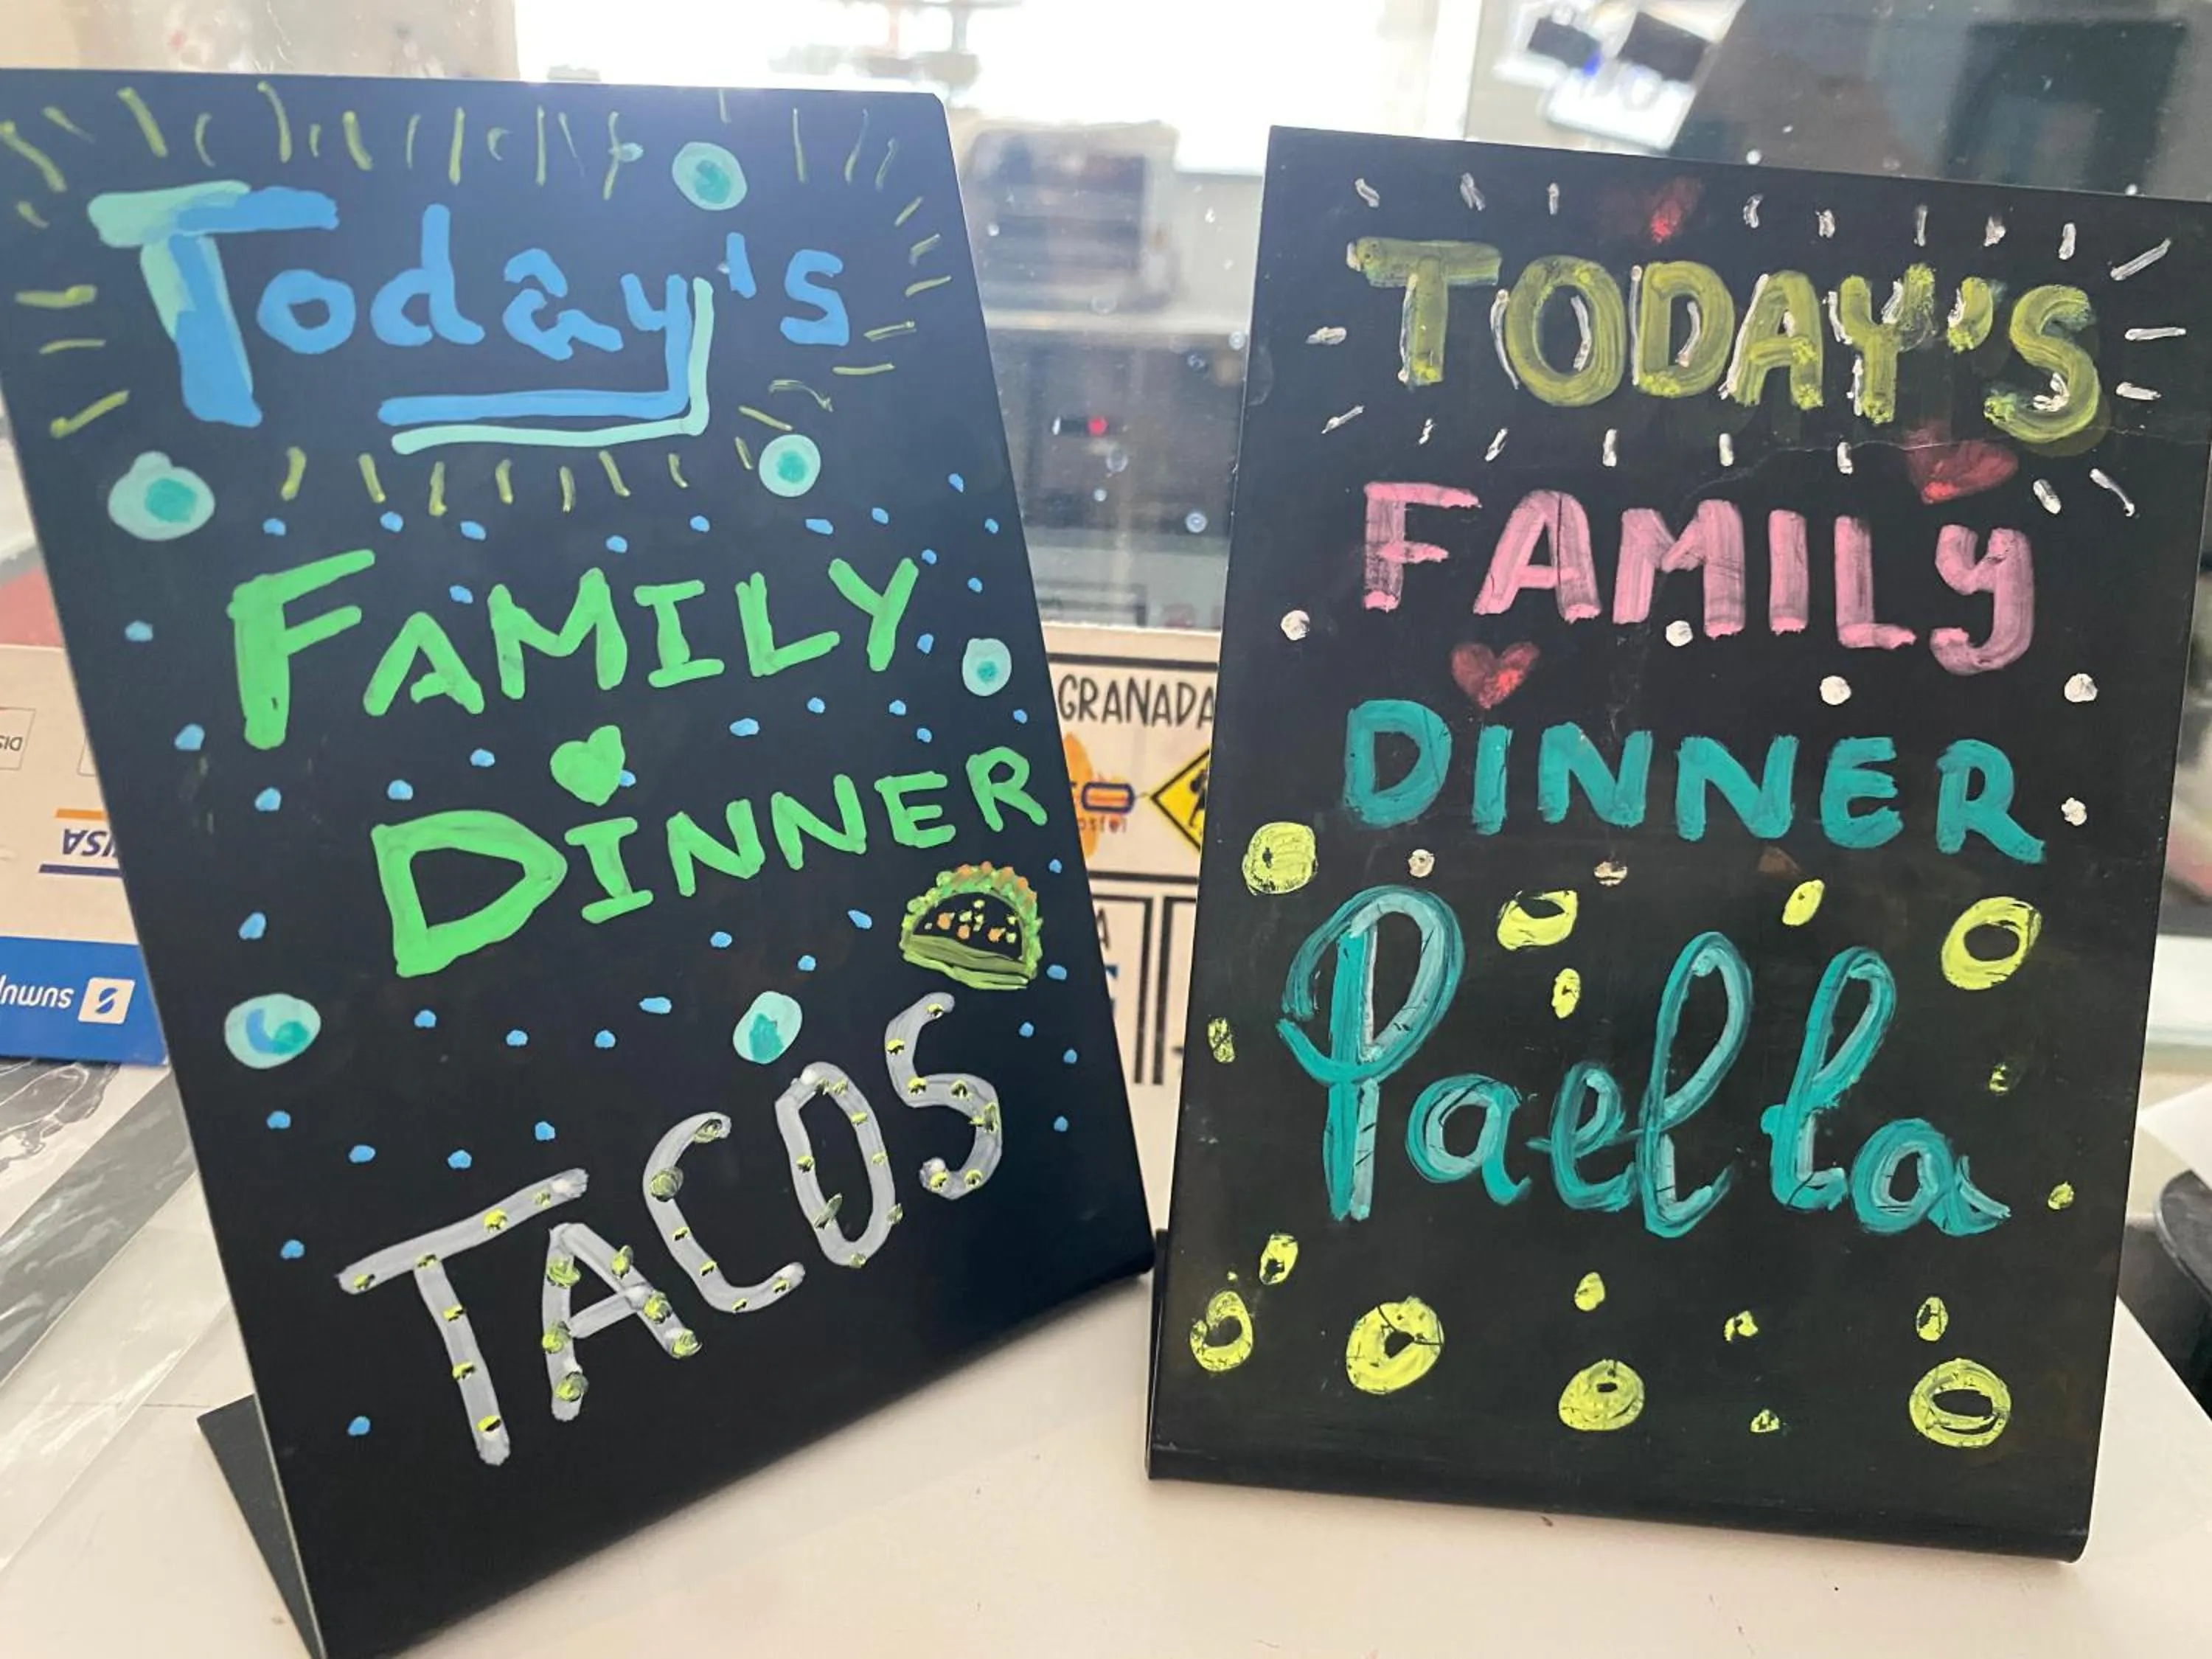 Today's
FAMILY
DINNER
TACOS
TODAY'S
FAMILY
DINNER
Paella
GRANADA
VISA
sumup